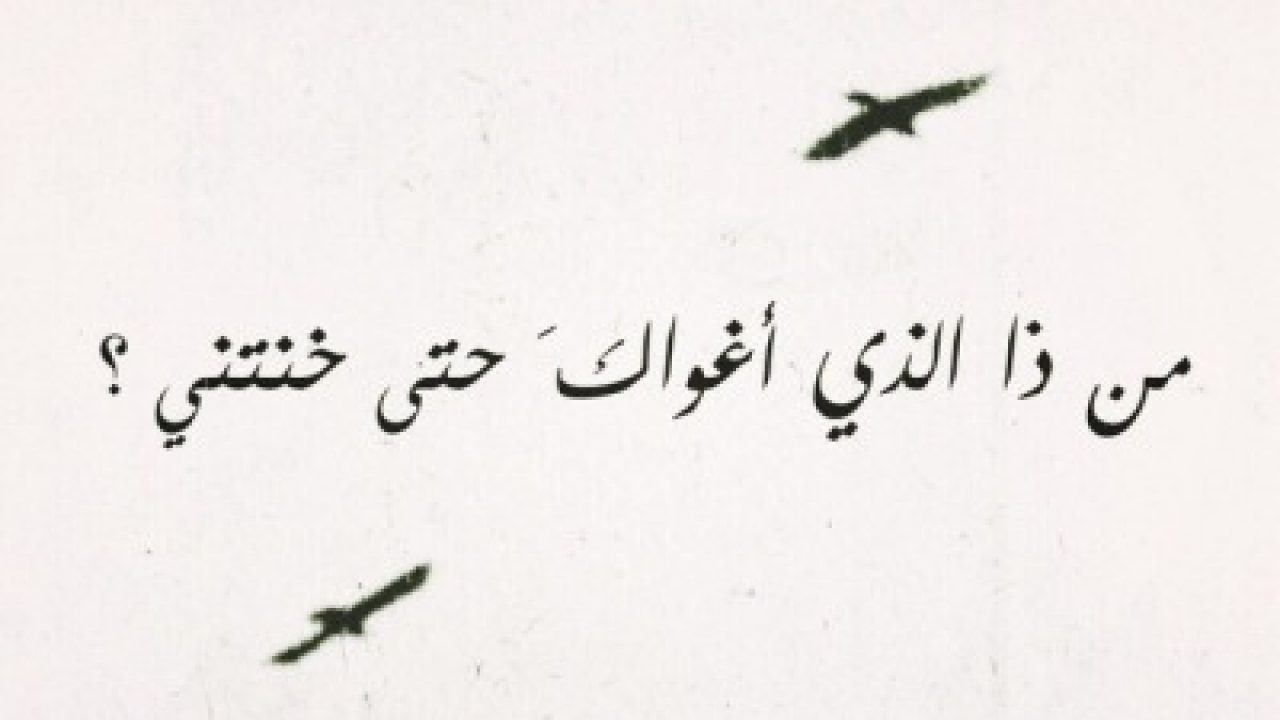 من ذا الذي أغواكَ َ حتى خنتني ؟